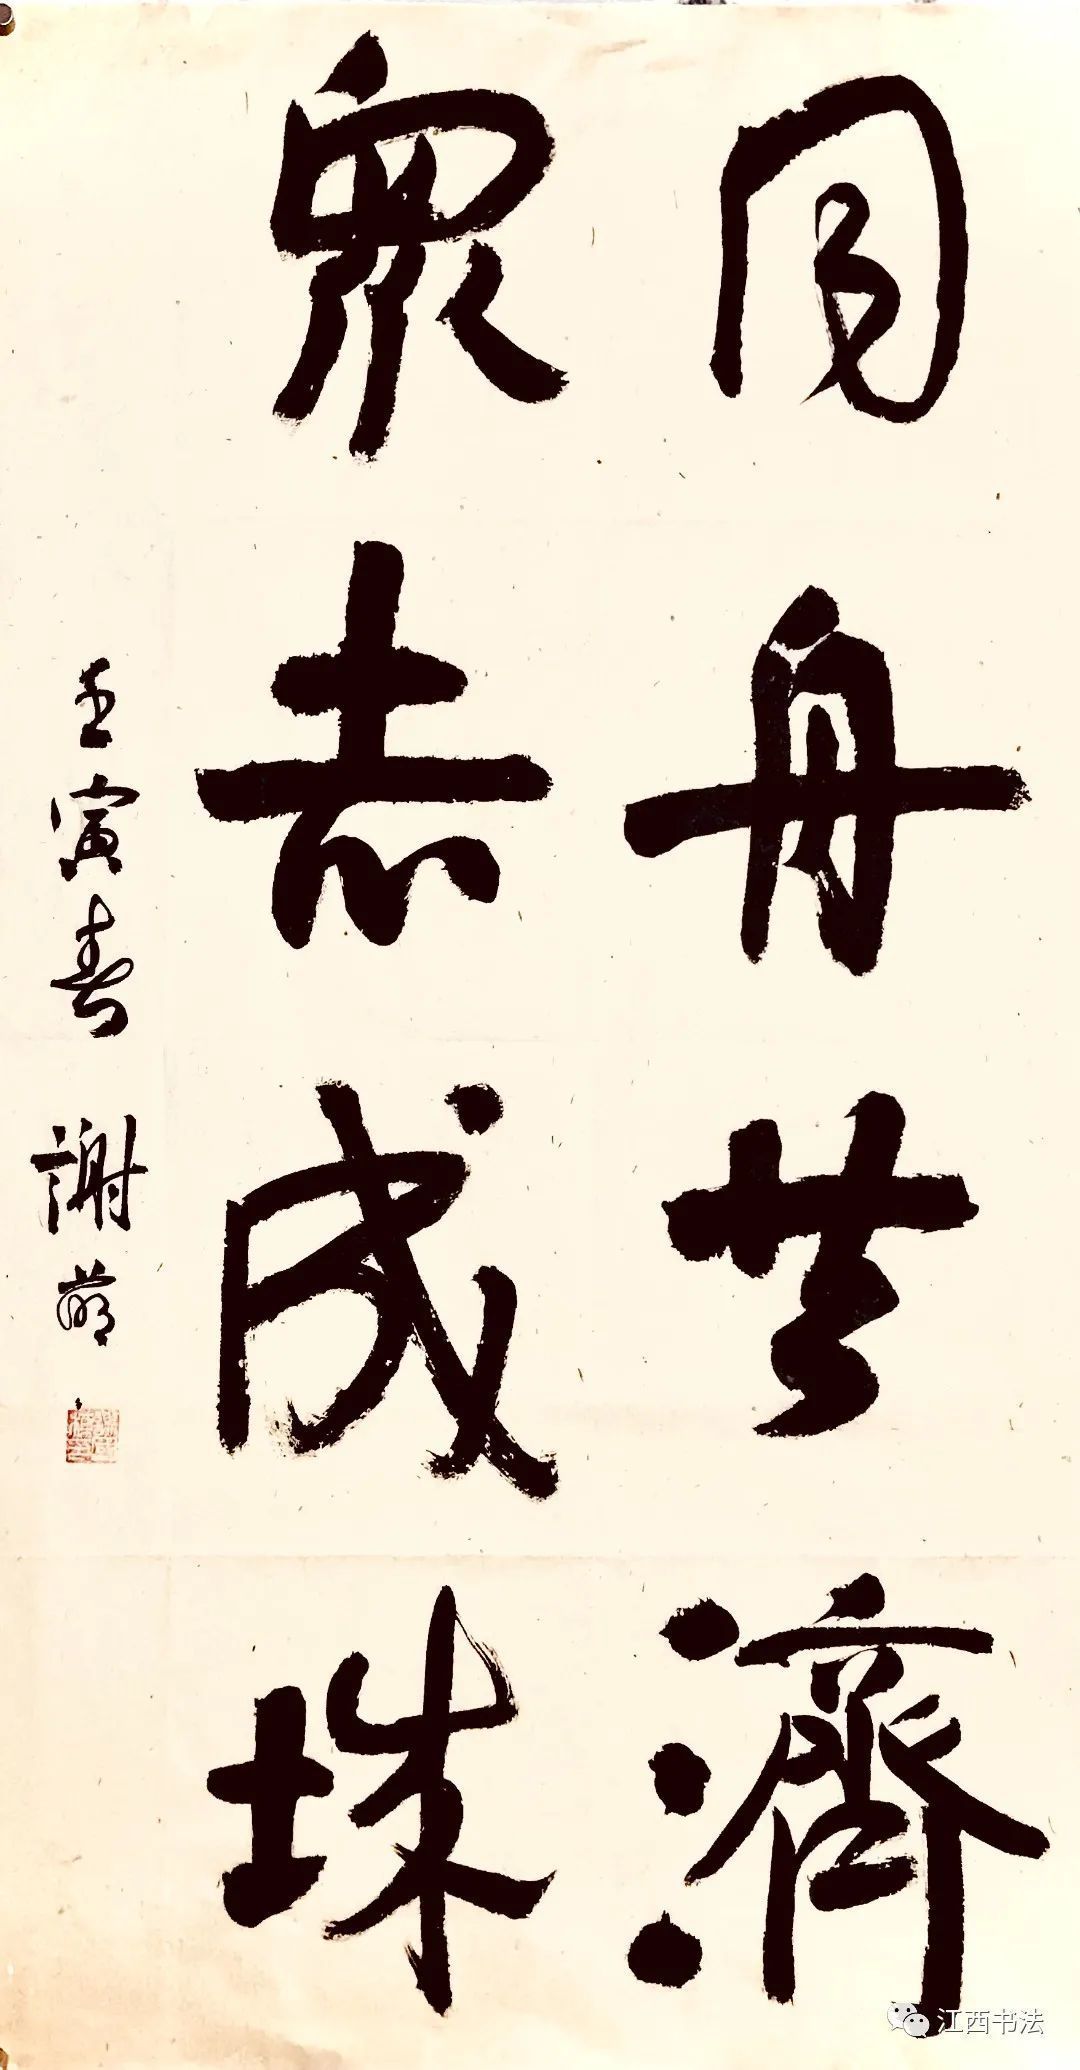 同舟共濟
眾志成城
壬寅春 謝萌
江西书法